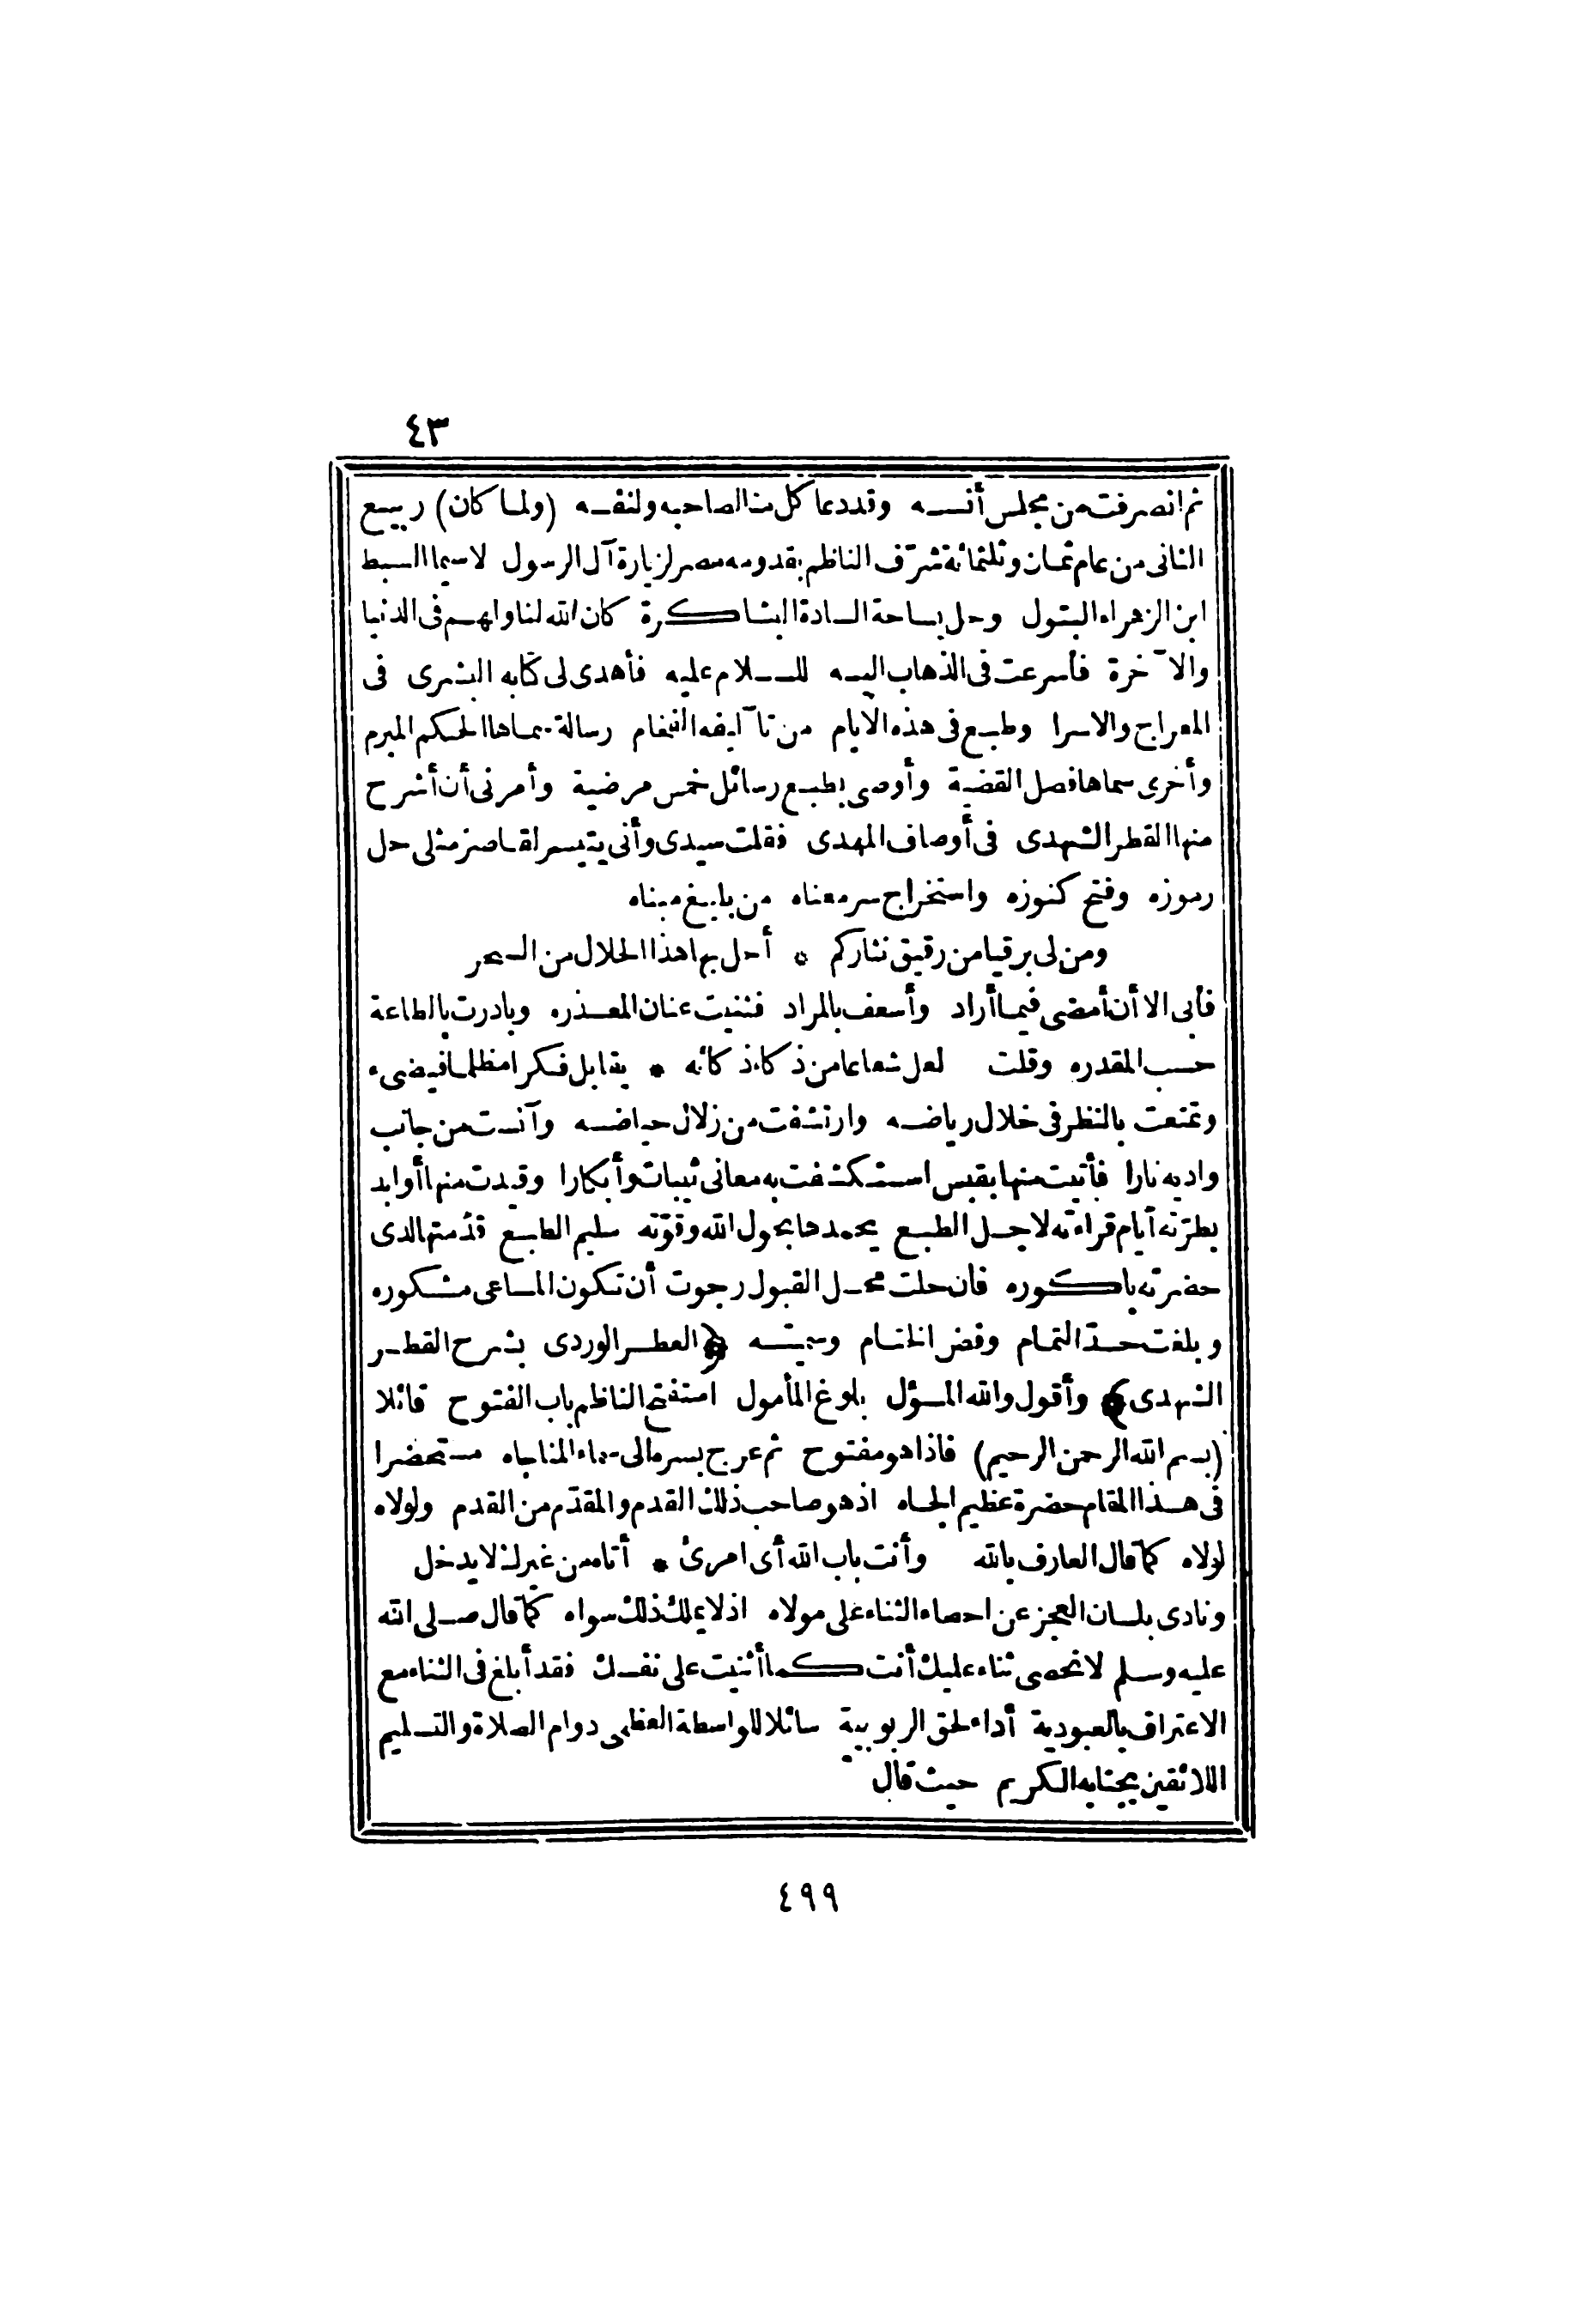 ٤٣
ثم انصرفت من مجلس أنسه وقد دعا كل منا لصاحبه ولنفسه (ولما كان) ربيع
الثانى من عام ثمان وثلثمائة شرّف الناظم بقدومه مصر لزيارة آل الرسول لاسيما السبط
ابن الزهراء البتول وحل بساحة السادة البشاكرة كان الله لنا ولهم فى الدنيا
والآخرة فأسرعت فى الذهاب اليه للسلام عليه فأهدى لى كتابه البشرى فى
المعراج والاسرا وطبع فى هذه الأيام من تآليفه الفخام رسالة سماها الحكم المبرم
وأخرى سماها فصل القضية وأوصى بطبع رسائل خمس مرضية وأمرنى أن أشرح
منها القطر الشهدى فى أوصاف المهدى فقلت سيدى وأنى يتيسر لقاصر مثلى حل
رموزه وفتح كنوزه واستخراج سر معناه من بليغ مبناه
ومن لى برقيا من رقيق نثاركم * أحل بها هذا الحلال من السحر
فأبى الا أن أمضى فيما أراد وأسعف بالمراد فثنيت عنان المعذره وبادرت بالطاعة
حسب المقدره وقلت لعل شعاعا من ذكاء ذكائه * يقابل فكرا مظلما فيضىء
وتمتعت بالنظر فى خلال رياضه وارتشفت من زلال حياضه وآنست من جانب
واديه نارا فأتيت منها بقبس استكشفت به معانى ثيبات وأبكارا وقيدت منها أوابد
بطرّته أيام قراءته لاجل الطبع يحمدها بحول الله وقوّته سليم الطبع قدّمتها لدى
حضرته باكوره فان حلت محل القبول رجوت أن تكون المساعى مشكوره
وبلغت حدّ التمام وفض الختام وسميته ﴿العطر الوردى بشرح القطر
الشهدى﴾ وأقول والله المسؤل بلوغ المأمول استفتح الناظم باب الفتوح قائلا
(بسم الله الرحمن الرحيم) فاذا هو مفتوح ثم عرج بسره الى سماء المناجاه مستحضرا
فى هذا المقام حضرة عظيم الجاه اذ هو صاحب ذلك القدم والمقدّم من القدم ولولاه
لولاه كما قال العارف بالله وأنت باب الله أى امرئ * أتاه من غيرك لا يدخل
ونادى بلسان العجز عن احصاء الثناء على مولاه اذ لا يملك ذلك سواه كما قال صلى الله
عليه وسلم لا نحصى ثناء عليك أنت كما أثنيت على نفسك فقد أبلغ فى الثناء مع
الاعتراف بالعبودية أداء لحق الربوبية سائلا للواسطة العظمى دوام الصلاة والتسليم
اللائقين بجنابه الكريم حيث قال
٤٩٩